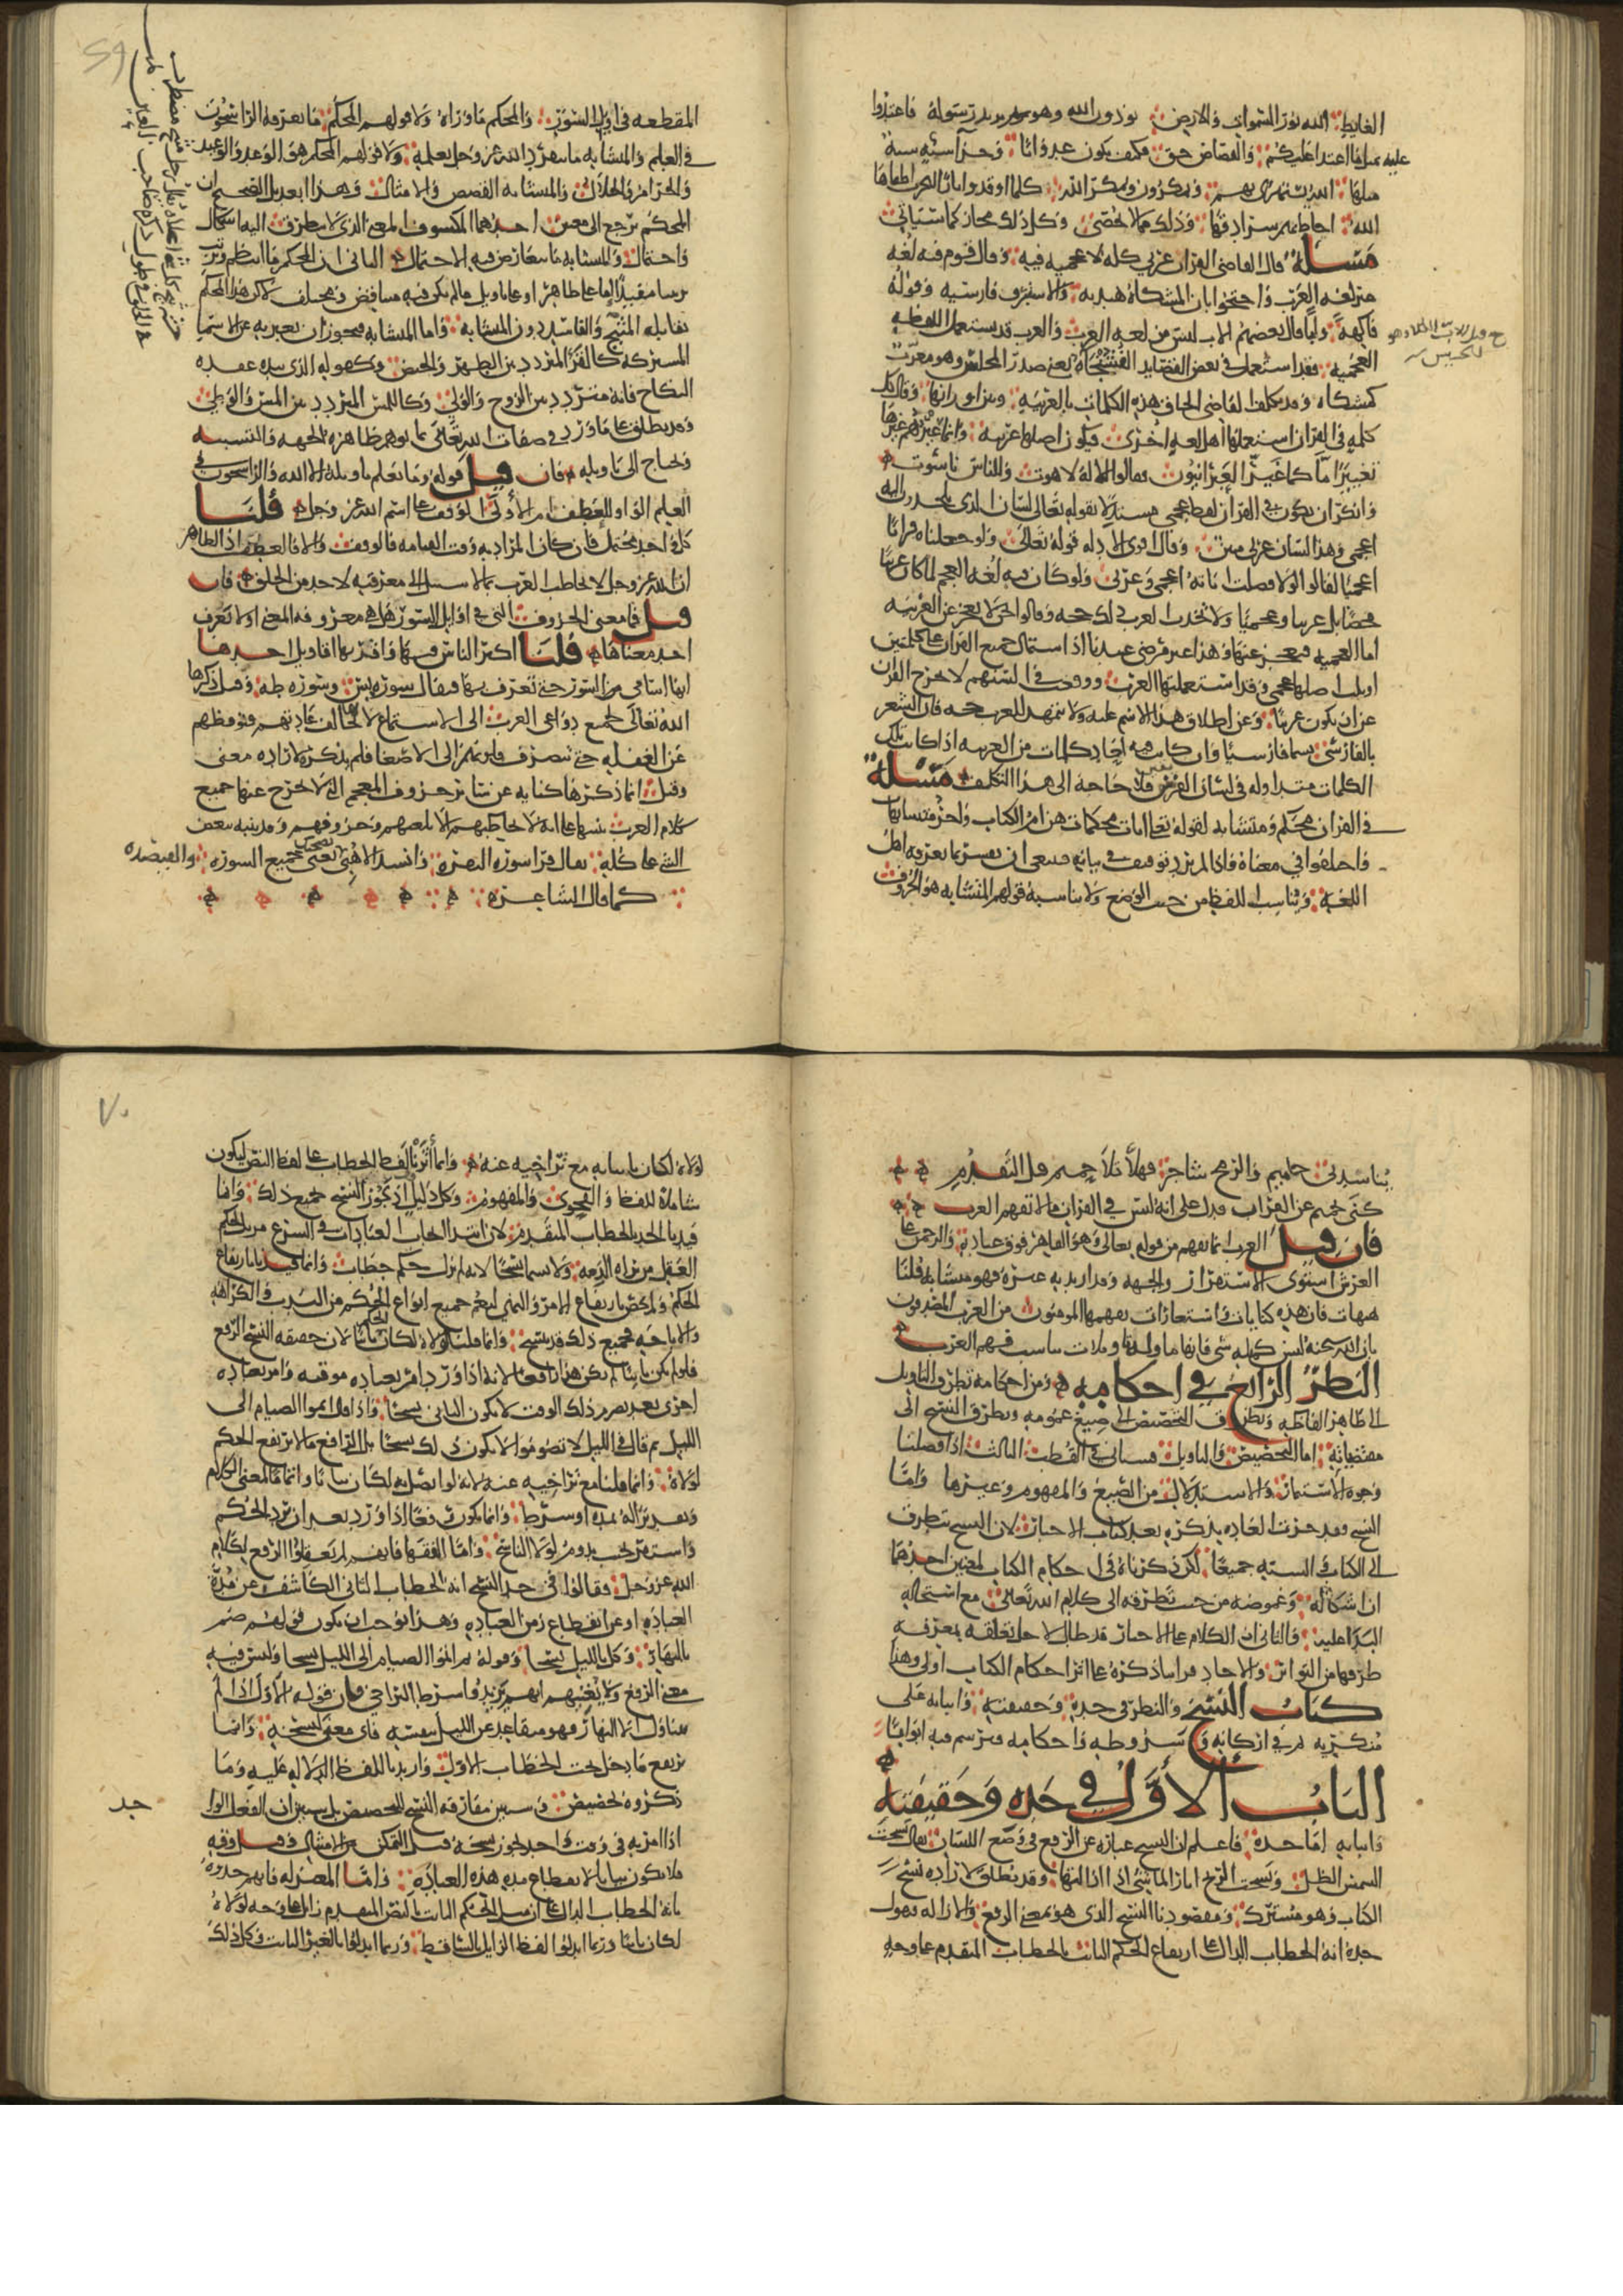 الغايط الله نور السموات والارض يوذون الله وهو يريد رسوله فاعتدوا
عليه بمثل ما اعتدا عليكم والقصاص حق فكيف يكون عدوانا وجزآ سيئه سيئة
مثلها الله يستهزى بهم ويمكرون ويمكر الله كلما اوقدوا نارا للحرب اطفاها
الله احاط بهم سرادقها وذلك مما لا يحصى وكل ذلك مجاز كما سياتي
مسلة قال القاضي القران عربي كله لا عجميه فيه وقال قوم فيه لغه
غير لغه العرب واحتجوا بان المشكاة هنديه والاستبرق فارسيه وقوله
فاكهة وابا قال بعضهم الاب ليس من لغه العرب والعرب قد يستعمل اللفظه
العجميه فقد استعمل في بعض القصايد العثجاة يعني صدر المجلس وهو معرب
كمشكاه وقد تكلف القاضي الحاق هذه الكلمات بالعربية وبين اوزانها وقال كل
كلمه في القران استعملها اهل لغه اخرى فيكون اصلها عربيه وانما غيرهم غيرها
تغييرا ما كما غير العبرانيون فقالوا للاله لاهوت وللناس ناسوت
وانكر ان يكون في القران لفظ عجمي مستدلا بقوله تعالى لسان الذي يلحدون اليه
اعجمي وهذا لسان عربي مبين وقال اقوى الادله قوله تعالى ولو جعلناه قرانا
اعجميا لقالوا لولا فصلت اياته اعجمي وعربي ولو كان فيه لغه العجم لما كان عربيا
محضا بل عربيا وعجميا ولا تخذ العرب ذلك حجه وقالوا نحن لا نعجز عن العربيه
اما العجميه فنعجز عنها وهذا غير مرضي عندنا اذ اشتمال جميع القران على كلمتين
او ثلث اصلها عجمي وقد استعملتها العرب ووقعت في السنتهم لا يخرج القران
عن ان يكون عربيا وعن اطلاق هذا الاسم عليه ولا يتمهد للعرب حجه فان الشعر
بالفارسي يسما فارسيا وان كانت فيه احاد كلمات من العربيه اذا كانت تلك
الكلمات متداوله في لسان الفرس فلا حاجة الى هذا التكلف مسلة
في القران محكم ومتشابه لقوله تعالى ايات محكمات هن ام الكتاب واخر متشابهات
واختلفوا في معناه فاذا لم يرد توقيف في بيانه فينبغي ان يفسر بما يعرفه اهل
اللغه ويناسب اللفظ من حيث الوضع ولا يناسبه قولهم المتشابه هو الحروف
المقطعه في اوايل السور والمحكم ماوراه ولا قولهم المحكم ما يعرفه الراسخون
في العلم والمتشابه ما ينفرد الله عز وجل بعلمه ولا قولهم المحكم هو الوعد والوعيد
والحرام والحلال والمتشابه القصص والامثال وهذا ابعد بل الصحيح ان
المحكم يرجع الى معنيين احدهما المكشوف المعنى الذي لا يتطرق اليه اشكال
واحتمال والمتشابه ما تعارض فيه الاحتمال الثاني ان المحكم ما انتظم وترتب
ترتيبا مفيدا اما على ظاهر او على تاويل ما لم يكن فيه متناقض ومختلف لاكن هذا المحكم
يقابله المثبج والفاسد دون المتشابه واما المتشابه فيجوز ان يعبر به عن الاسما
المشتركه كالقرا المتردد بين الطهر والحيض وكقوله الذي بيده عقده
النكاح فانه متردد بين الزوج والولي وكاللمس المتردد بين المس والوطي
وقد يطلق على ما ورد في صفات الله تعالى مما يوهم ظاهره الجهه والتشبيه
ويحتاج الى تاويله فان قيل قوله وما يعلم تاويله الا الله والراسخون في
العلم الواو للعطف ام الاولى الوقف على اسم الله عز وجل قلنا
كل واحد محتمل فان كان المراد به وقت القيامه فالوقف والا فالعطف اذ الظاهر
ان الله عز وجل لا يخاطب العرب بما لا سبيل الى معرفته لاحد من الخلق فان
قيل فما معنى الحروف التي في اوايل السور هل هي معروفه المعنى او لا يعرف
احد معناها قلنا اكثر الناس فيها واقربها اقاويل احدها
انها اسامي من السور حتى تعرف بها فيقال سورة يس وسوره طه وقيل ذكرها
الله تعالى لجمع دواعي العرب الى الاستماع لانها تخالف عادتهم فتوقظهم
عن الغفله حتى تصرف قلوبهم الى الاصغا فلم يذكر لاراده معنى
وقيل انما ذكرها كنايه عن ساير حروف المعجم التي لا يخرج عنها جميع
كلام العرب تنبيها على انه لا يخاطبهم الا بلغتهم وحروفهم وقد ينبه ببعض
الشي على كله يقال قرا سورة البقره وانشد الا هبي يعني جميع السوره والقصيده
كما قال الشاعر
يناشدني حاميم والرمح شاجر فهلا تلا حميم قبل التقدم
كنى بحميم عن القران فدل على انه ليس في القران ما لا تفهم العرب
فان قيل العرب انما تفهم من قوله تعالى وهو القاهر فوق عباده والرحمن على
العرش استوى الاستقرار والجهه وقد اريد به غيره فهو متشابه قلنا
هيهات فان هذه كنايات واستعارات يفهمها المومنون من العرب المصدقون
بان الله سبحنه ليس كمثله شي فانها ماوله تاويلات تناسب فهم العرب
النظر الرابع في احكامه ومن احكامه تطرق التاويل
الى ظاهر الفاظه وتطرق التخصيص الى صيغ عمومه وتطرق النسخ الى
مقتضياته اما التخصيص والتاويل فسياتي في القطب الثالث اذا فصلنا
وجوه الاستثمار والاستدلال من الصيغ والمفهوم وغيرها واما
النسخ فقد جرت العاده بذكره بعد كتاب الاخبار لان النسخ يتطرق
الى الكتاب والسنه جميعا لكن ذكرناه في احكام الكتاب لمعنيين احدهما
ان اشكاله وغموضه من حيث تطرقه الى كلام الله تعالى مع استحاله
البدا عليه والثاني ان الكلام على الاخبار قد طال لاجل تعلقه بمعرفه
طرقها من التواتر والاحاد فراينا ذكره على اثر احكام الكتاب اولى وهذا
كتاب النسخ والنظر في حده وحقيقته واثباته على
منكريه ثم في اركانه وشروطه واحكامه فنرسم فيه ابوابا
الباب الاول في حده وحقيقته
واثباته اما حده فاعلم ان النسخ عبارة عن الرفع في وضع اللسان يقال نسخت
الشمس الظل ونسخت الريح اثار الماشي اذا ازالتها وقد يطلق لاراده نسخ
الكتاب وهو مشترك ومقصودنا النسخ الذي هو بمعنى الرفع والازاله فنقول
حده انه الخطاب الدال على ارتفاع الحكم الثابت بالخطاب المتقدم على وجه
لولاه لكان ثابتا به مع تراخيه عنه وانما آثرنا لفظ الخطاب على لفظ النص ليكون
شاملا للفظ والفحوى والمفهوم وكل دليل اذ يجوز النسخ لجميع ذلك وانما
قيدنا الحد بالخطاب المتقدم لان ابتدا ايجاب العبادات في الشرع مزيل لحكم
العقل من براه الذمه ولا يسما نسخا لانه لم يزل حكم خطاب وانما قيدنا بارتفاع
الحكم ولم نخص بارتفاع الامر والنهي ليعم جميع انواع الحكم من الندب والكراهه
والاباحه فجميع ذلك قد ينسخ وانما قلنا لولاه لكان الحكم ثابتا لان حقيقه النسخ الرفع
فلو لم يكن ثابتا لم يكن هذا رافعا لانه اذا ورد امر بعباده موقته وامر بعباده
اخرى بعد تصرم ذلك الوقت لا يكون الثاني نسخا فاذا قال اتموا الصيام الى
الليل ثم قال في الليل لا تصوموا لا يكون ذلك نسخا بل الرافع ما لا يرتفع الحكم
لولاه وانما قلنا مع تراخيه عنه لانه لو اتصل به لكان بيانا واتماما لمعنى الكلام
وتقديرا له بمده او شرط وانما يكون رافعا اذا ورد بعد ان ورد الحكم
واستقر بحيث يدوم لولا الناسخ واما الفقها فانهم لم يعقلوا الرفع لكلام
الله عز وجل فقالوا في حد النسخ انه الخطاب الثاني الكاشف عن مدة
العباده او عن انقطاع زمن العباده وهذا يوجب ان يكون قولهم صم
بالنهار وكل بالليل نسخا وقوله ثم اتموا الصيام الى الليل نسخا وليس فيه
معنى الرفع ولا يغنيهم ان يزيدوا شرط التراخي فان قوله الاول اذا لم
يتناول الا النهار فهو متقاعد عن الليل بنفسه فاي معنى لنسخه وانما
يرتفع ما يدخل تحت الخطاب الاول واريد باللفظ الدلاله عليه وما
ذكروه تخصيص وسنبين مفارقه النسخ للتخصيص بل سنبين ان الفعل الواحد
اذا امر به في وقت واحد يجوز نسخه قبل التمكن من الامتثال وقبل وقته
فلا يكون بيانا لانقطاع مده هذه العباده واما المعتزله فانهم حدوه
بانه الخطاب الدال على ان مثل الحكم الثابت بالنص المتقدم زايل على وجه لولاه
لكان ثابتا وربما ابدلوا لفظ الزايل بالساقط وربما ابدلوه بالغير الثابت وكل ذلك